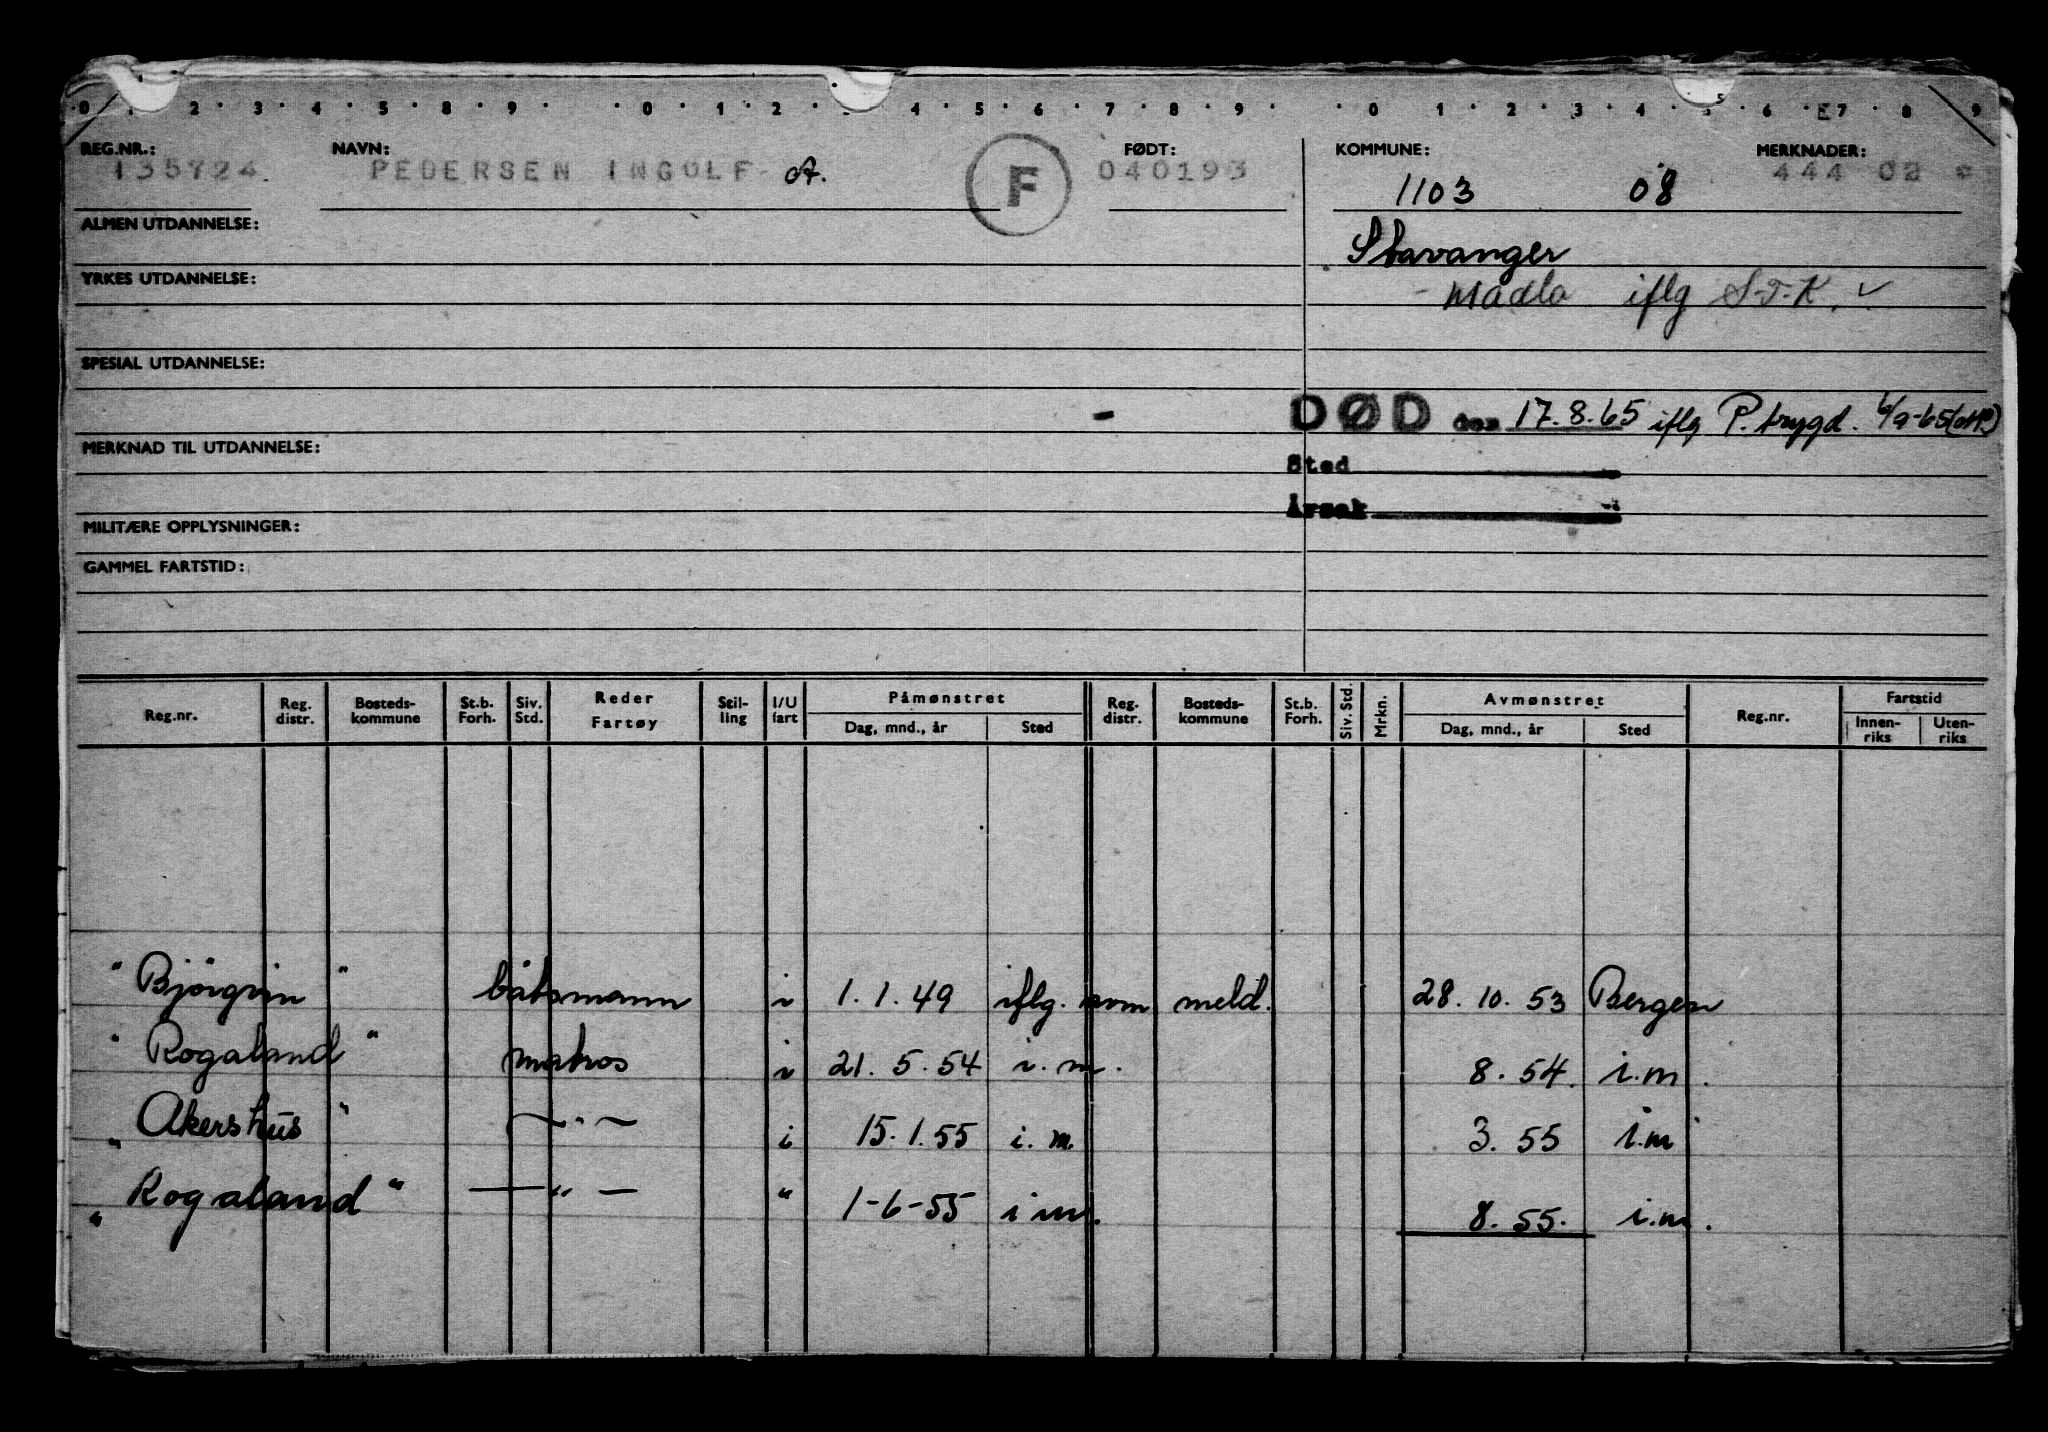 0 . 1 . 2 . 3 . 4 . 5 . 8 . 9 . . 0 . 1 . 2 . . 4 . 5 . 6 . 7 . 8 . 9 . . 0 . 1 . 2 . 3 . 4 . 5 . 6 . E7 . 8 . 9
REG.NR.: NAVN: FØDT: KOMMUNE: MERKNADER:
135724 PEDERSEN INGOLF A. F 040193 1103 08 444 02
ALMEN UTDANNELSE: Stavanger
YRKES UTDANNELSE: Madla iflg S.T.K. ✓
SPESIAL UTDANNELSE:
- DØD den 17.8.65 iflg P.trygd. 6/9-65
MERKNAD TIL UTDANNELSE: Sted
MILITÆRE OPPLYSNINGER: Årsak
GAMMEL FARTSTID:
Reg.nr. Reg. distr. Bosteds-kommune St.b. Forh. Siv. Std. Reder Fartøy Stil-ling I/U fart Påmønstret Dag, mnd., år Sted Reg. distr. Bosteds-kommune St.b. Forh. Siv. Std. Mrkn. Avmønstret Dag, mnd., år Sted Reg.nr. Fartstid Innen-riks Uten-riks
"Bjørgvin" båtsmann i 1.1.49 iflg. som meld. 28.10.53 Bergen
"Rogaland" matros i 21.5.54 i.m. 8.54. i.m.
"Akershus" —"— i 15.1.55 i.m. 3.55 i.m
"Rogaland" —"— " 1-6-55 i m. 8.55. i.m.